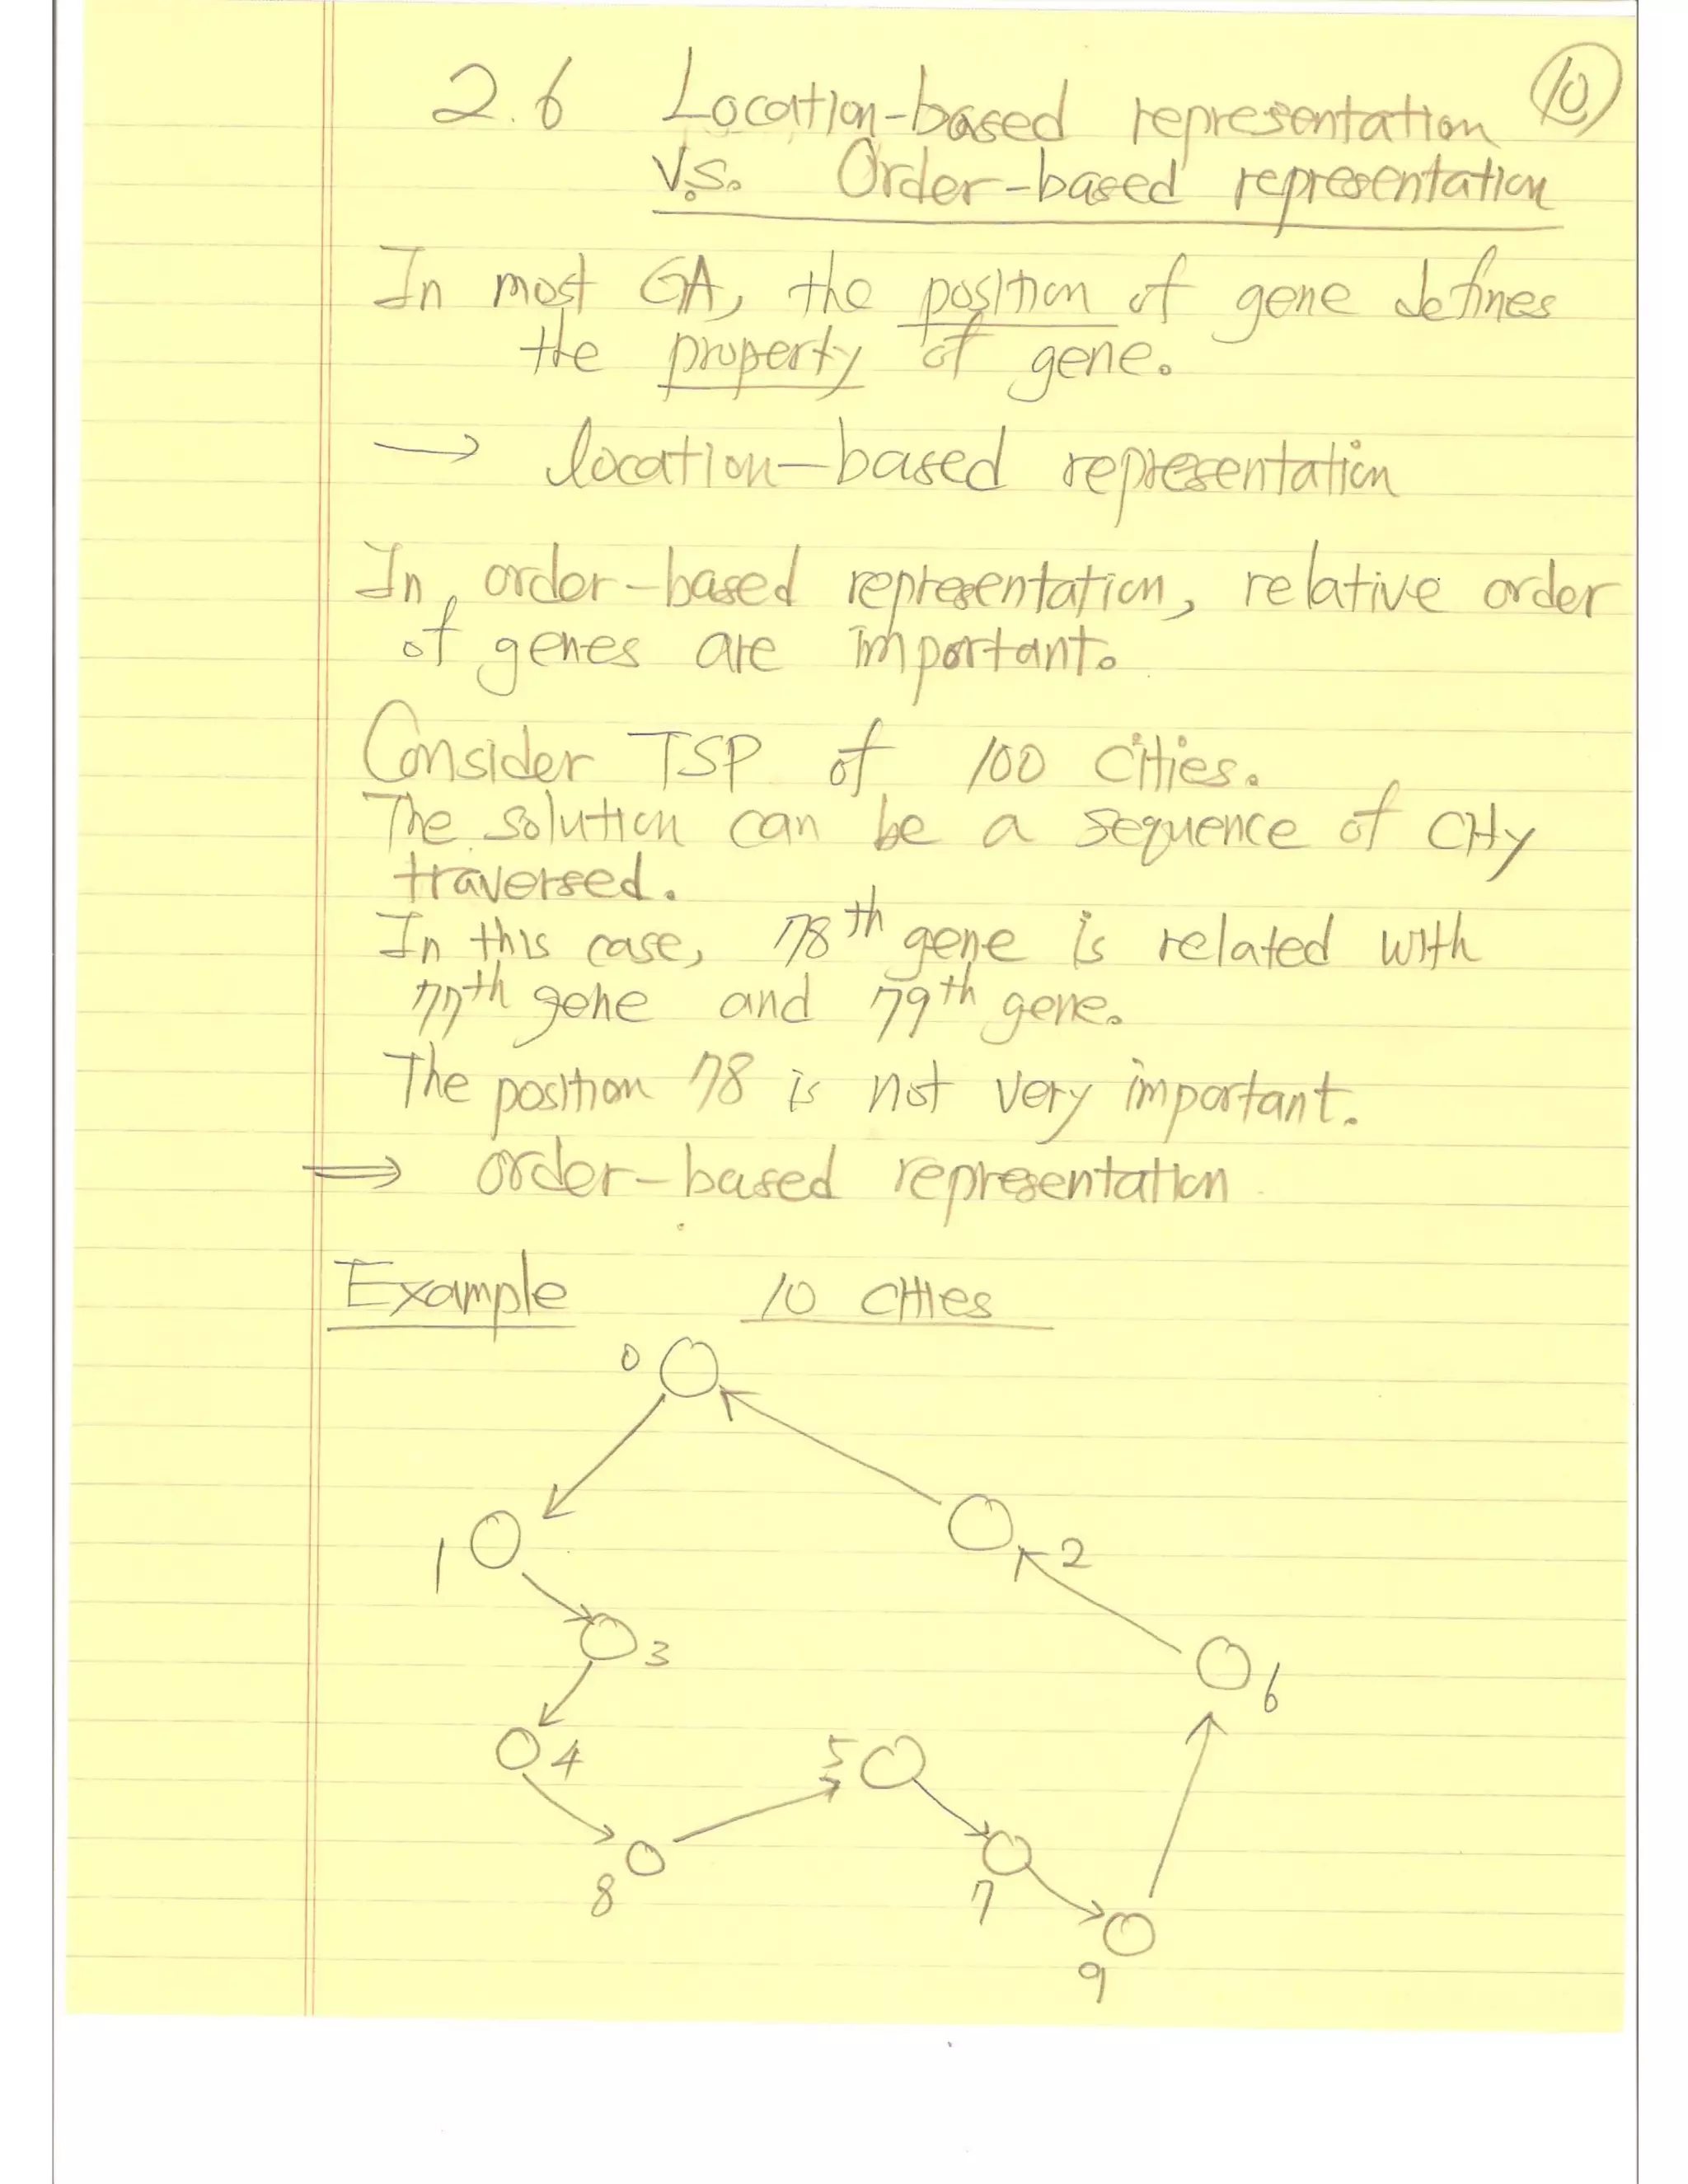 2.6 Location-based representation
⑩
V.S. Order-based representation
In most GA, the position of gene defines
the property of gene.
→ location-based representation
In order-based representation, relative order
of genes are important.
Consider TSP of 100 cities.
The solution can be a sequence of city
traversed.
In this case, 78th gene is related with
77th gene and 79th gene.
The position 78 is not very important.
⇒ order-based representation
Example 10 cities
0
1
2
3
6
4
5
8
7
9